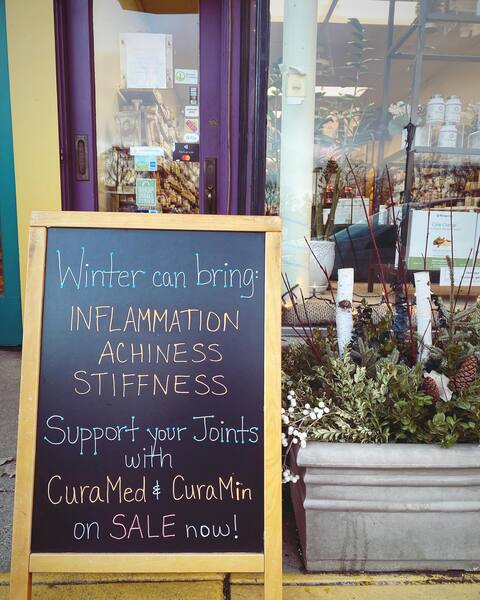 Winter can bring:
INFLAMMATION
ACHINESS
STIFFNESS
Support your Joints
with
CuraMed & CuraMin
on SALE now!